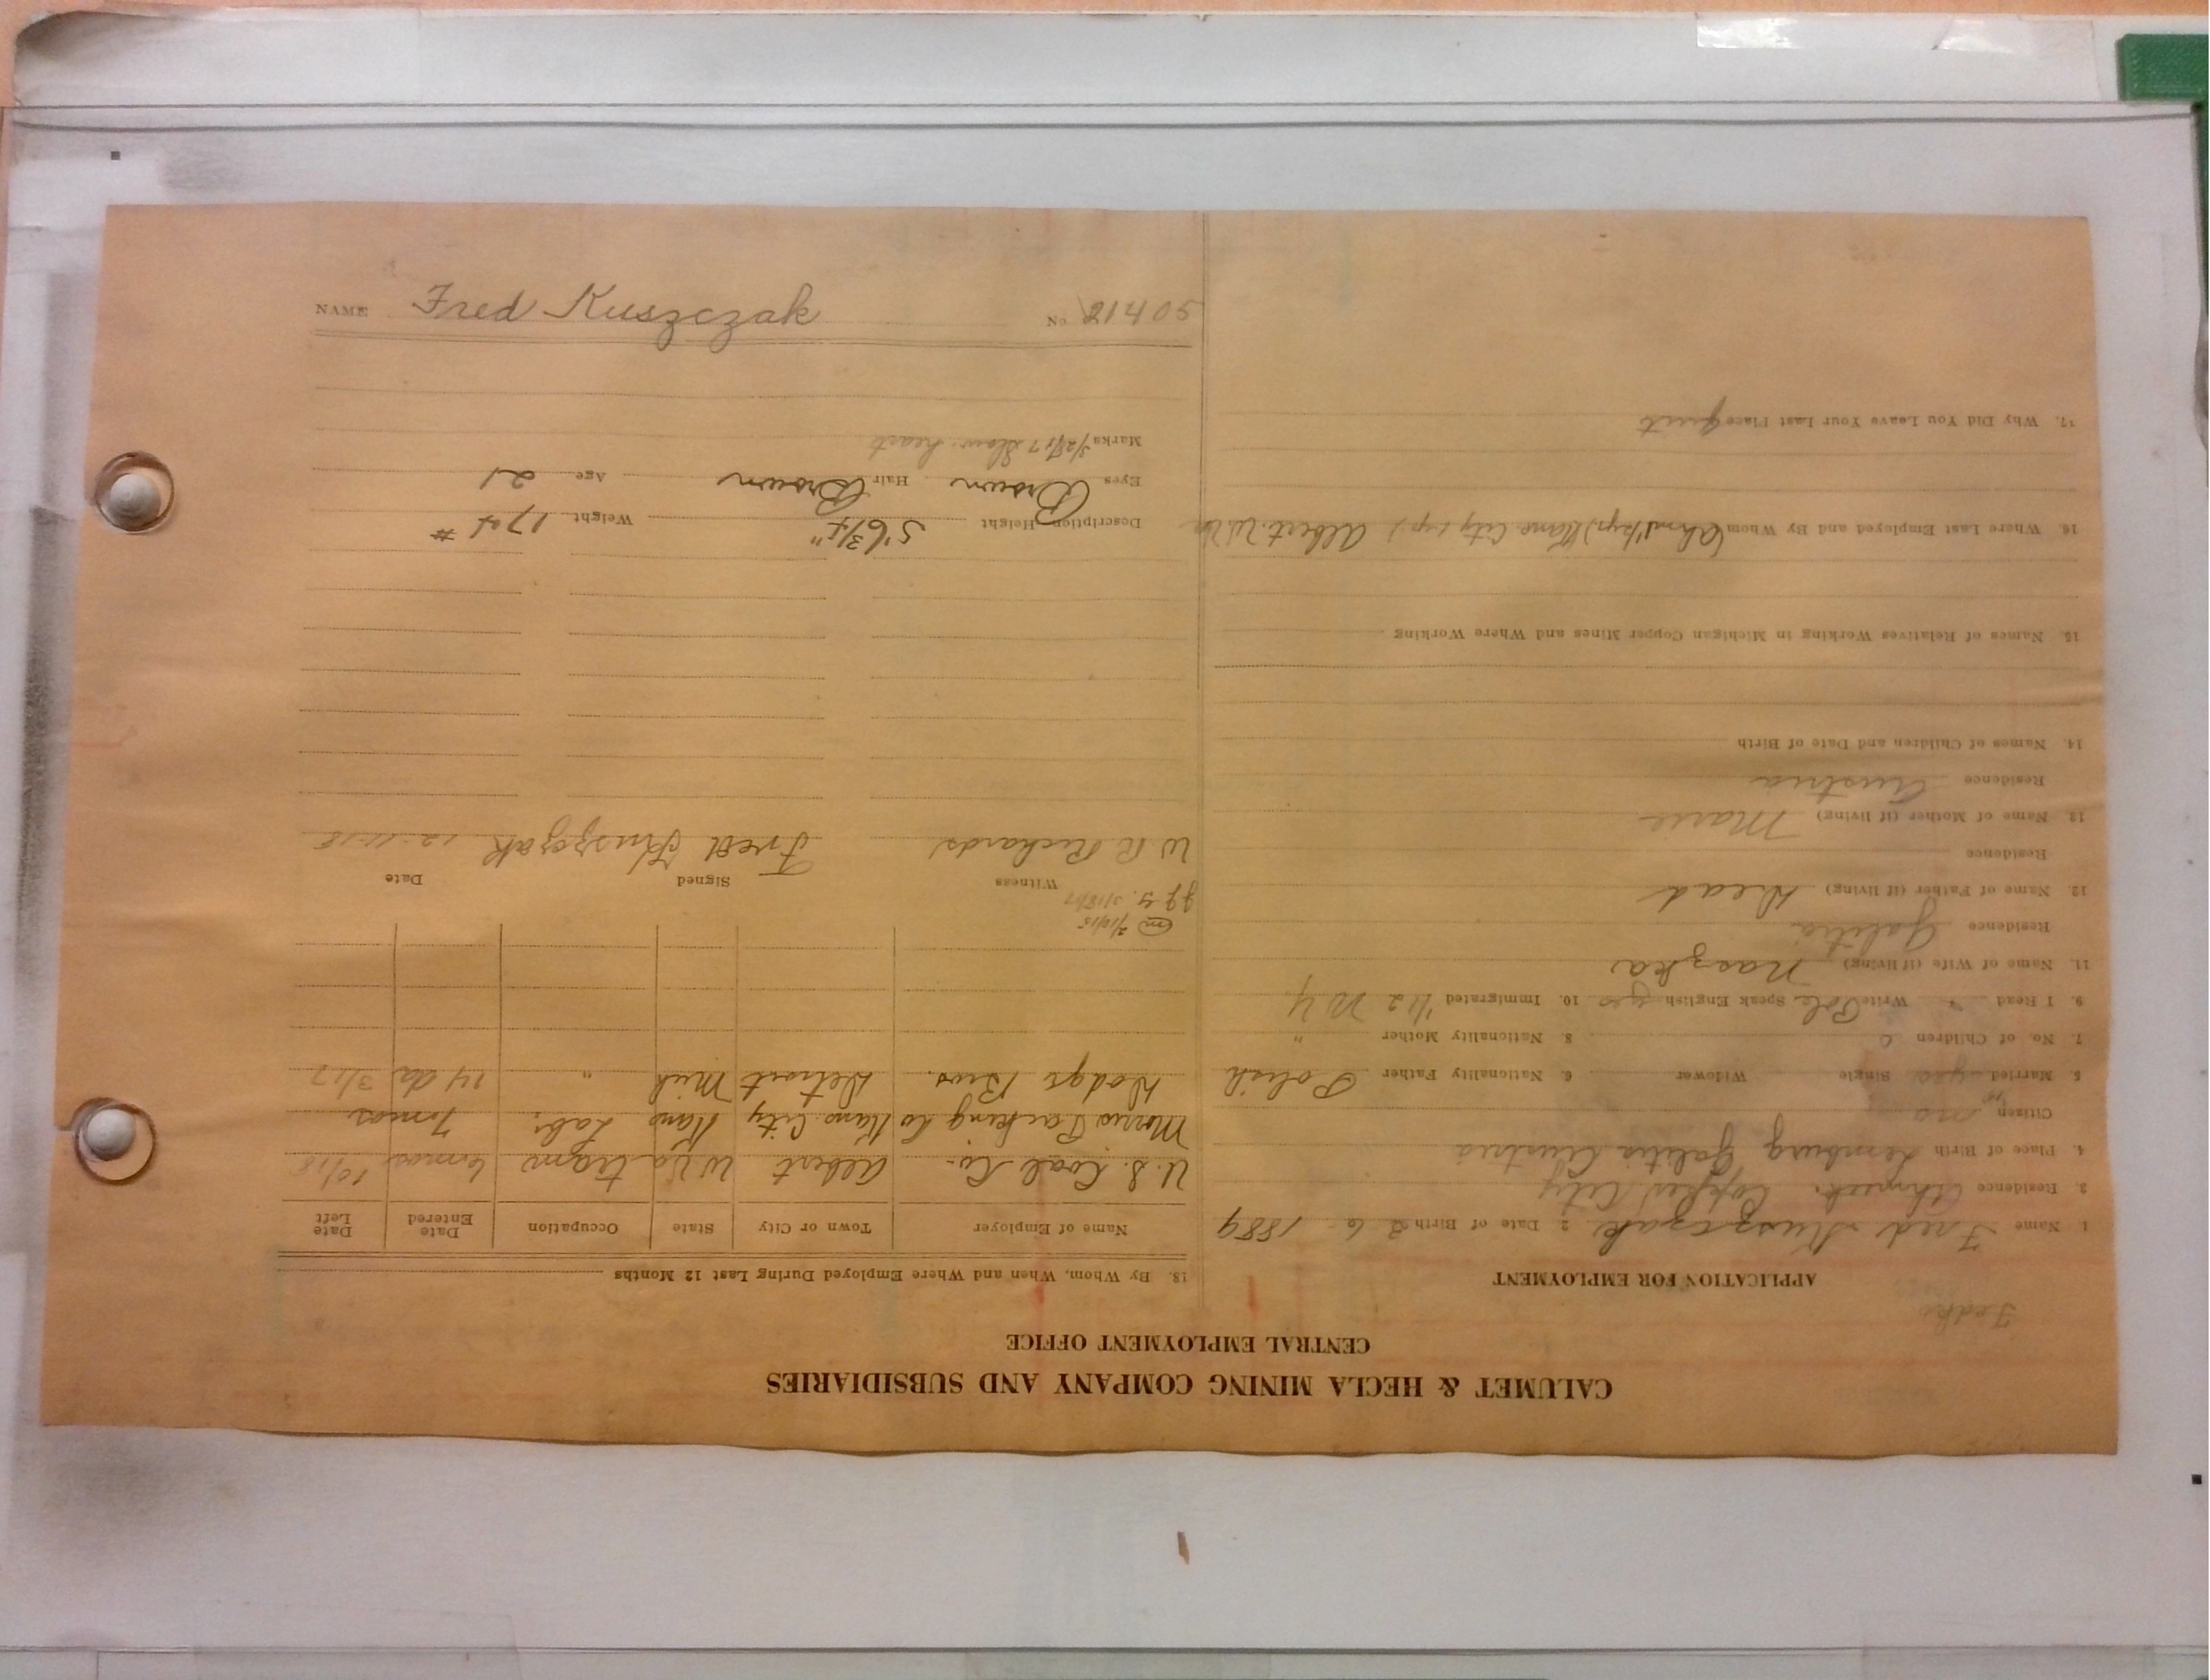 CALUMET & HECLA MINING COMPANY AND SUBSIDIARIES
CENTRAL EMPLOYMENT OFFICE
Fedko
APPLICATION FOR EMPLOYMENT
1. Name Fred Kuszczak 2. Date of Birth 26 1889
3. Residence Ahmeek. Copper City
4. Place of Birth Lemburg Galitia Austria
Citizen no
5. Married yes Single Widower 6. Nationality Father Polish
7. No. of Children 0 8. Nationality Mother "
9. I Read Write Pole Speak English yes 10. Immigrated 1/12 N Y
11. Name of Wife (if living) Naszka
Residence Galitia
12. Name of Father (if living) Dead
Residence
13. Name of Mother (if living) Marie
Residence Austria
14. Names of Children and Date of Birth
15. Names of Relatives Working in Michigan Copper Mines and Where Working
16. Where Last Employed and By Whom Kans City Albert W.Va
17. Why Did You Leave Your Last Place quit
18. By Whom, When and Where Employed During Last 12 Months
Name of Employer Town or City State Occupation Date Entered Date Left
U.S. Coal Co. Albert W Va tram 6 mos 10/15
Morris Packing Co Kans. City Kans Lab. 7 mos
Dodge Bros. Detroit Mich " 14 da 3/17
Witness Signed Date
W R Richards Fred Kuszczak
Description Height 5' 6 3/4" Weight 170 #
Eyes Brown Hair Brown Age 21
Marks Slow heart
NAME Fred Kuszczak No 21405